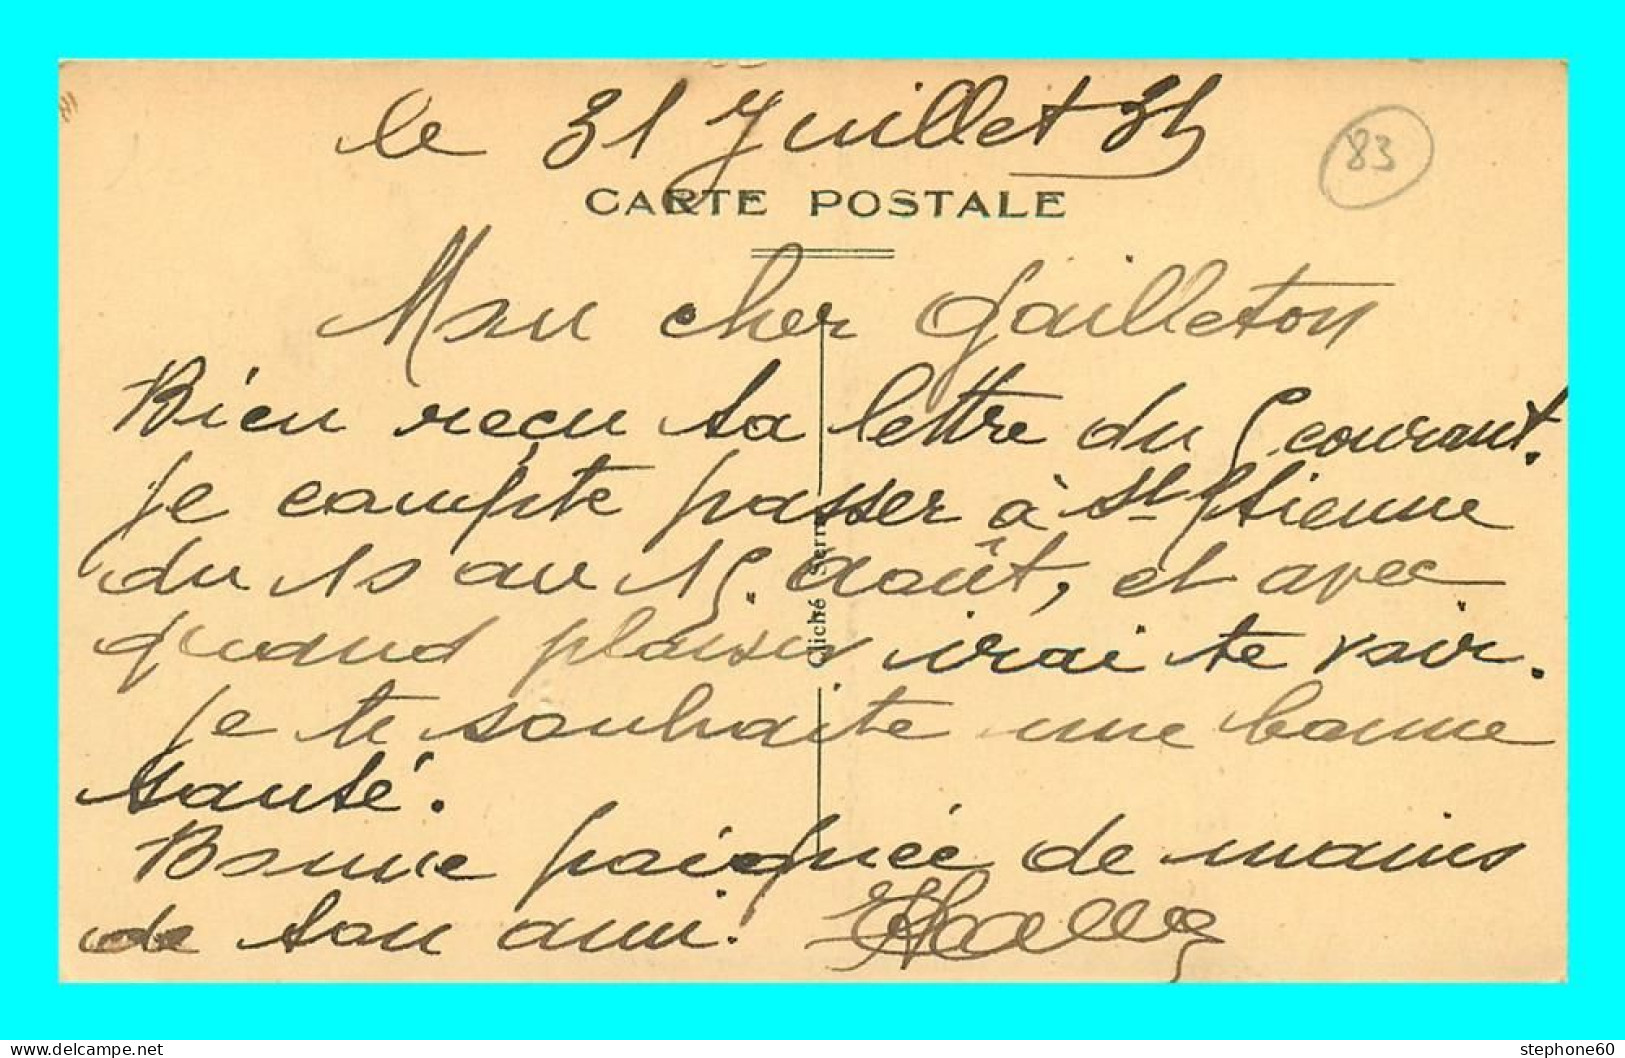 le 31 Juillet 35
83
CARTE POSTALE
Mon cher Gailleton
Bien reçu ta lettre du 5 courant.
je compte passer à St Etienne
du 10 au 15 Août, et avec
grand plaisir irai te voir.
je te souhaite une bonne
santé.
Bonne poignée de mains
de ton ami.
Cliché Serre
delcampe.net
stephone60